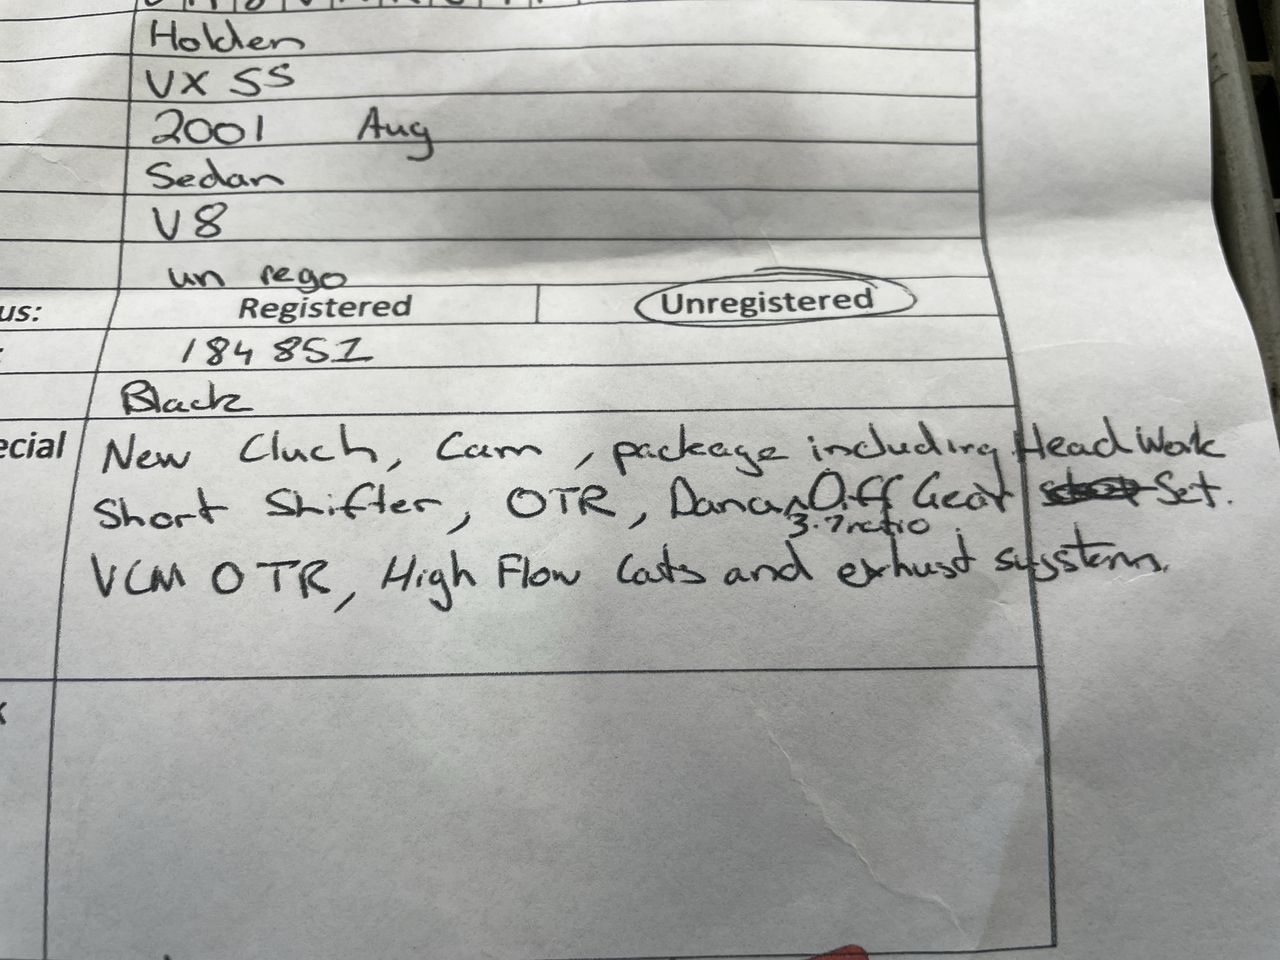 Holden
VX SS
2001 Aug
Sedan
V8
un rego
us: Registered Unregistered
184 851
Black
ecial New Cluch, Cam, package including Head Work
Short Shifter, OTR, Diff Gear Set.
3.7 ratio
VCM OTR, High Flow Cats and exhust systems.